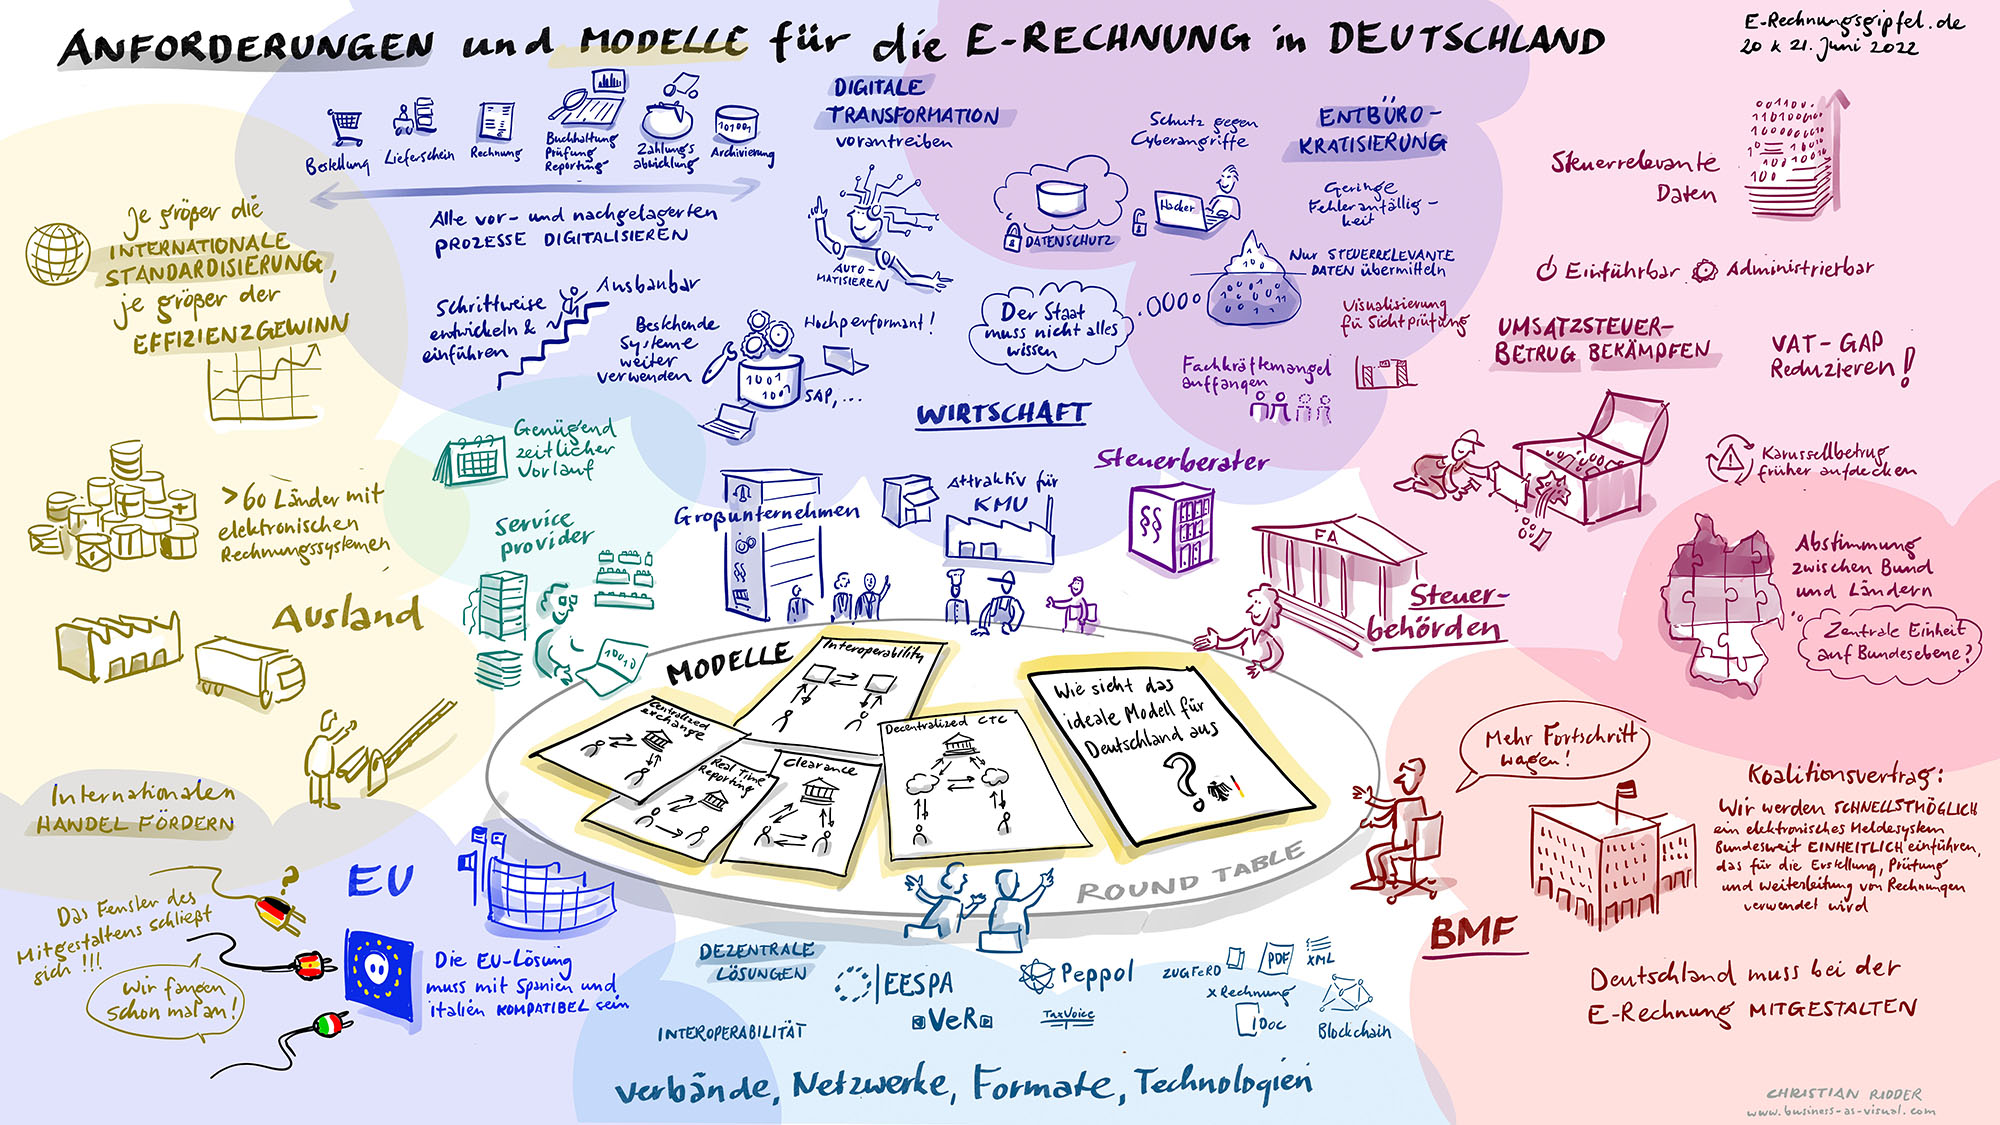 ANFORDERUNGEN und MODELLE für die E-RECHNUNG in DEUTSCHLAND
E-Rechnungsgipfel.de
20 & 21. Juni 2022
Bestellung
Lieferschein
Rechnung
Buchhaltung
Prüfung
Reporting
Zahlungs
abwicklung
10101
Archivierung
Alle vor- und nachgelagerten
PROZESSE DIGITALISIEREN
DIGITALE
TRANSFORMATION
vorantreiben
AUTO-
MATISIEREN
Schutz gegen
Cyberangriffe
Hacker
DATENSCHUTZ
ENTBÜRO-
KRATISIERUNG
Geringe
Fehleranfällig-
keit
Nur STEUERRELEVANTE
DATEN übermitteln
Der Staat
muss nicht alles
wissen
Visualisierung
für Sichtprüfung
Fachkräftemangel
auffangen
Steuerrelevante
Daten
Einführbar
Administrierbar
UMSATZSTEUER-
BETRUG BEKÄMPFEN
VAT-GAP
Reduzieren!
Karussellbetrug
früher aufdecken
Je größer die
INTERNATIONALE
STANDARDISIERUNG,
je größer der
EFFIZIENZGEWINN
Schrittweise
entwickeln &
einführen
Ausbaubar
Bestehende
Systeme
weiter
verwenden
Hochperformant!
SAP, ...
WIRTSCHAFT
Genügend
zeitlicher
Vorlauf
Service
provider
10010
Großunternehmen
Attraktiv für
KMU
Steuerberater
§§
FA
Steuer-
behörden
Abstimmung
zwischen Bund
und Ländern
Zentrale Einheit
auf Bundesebene?
>60 Länder mit
elektronischen
Rechnungssystemen
Ausland
Internationalen
HANDEL FÖRDERN
MODELLE
Interoperability
Centralized
exchange
Real Time
Reporting
Clearance
Decentralized CTC
Wie sieht das
ideale Modell für
Deutschland aus
?
ROUND TABLE
Mehr Fortschritt
wagen!
BMF
Koalitionsvertrag:
Wir werden SCHNELLSTMÖGLICH
ein elektronisches Meldesystem
Bundesweit EINHEITLICH einführen,
das für die Erstellung, Prüfung
und Weiterleitung von Rechnungen
verwendet wird
Deutschland muss bei der
E-Rechnung MITGESTALTEN
EU
?
Das Fenster des
Mitgestaltens schließt
sich !!!
Wir fangen
schon mal an!
Die EU-Lösung
muss mit Spanien und
Italien KOMPATIBEL sein
DEZENTRALE
LÖSUNGEN
INTEROPERABILITÄT
EESPA
VeR
Peppol
TaxVoice
ZUGFeRD
XRechnung
PDF
XML
iDoc
Blockchain
Verbände, Netzwerke, Formate, Technologien
CHRISTIAN RIDDER
www.business-as-visual.com